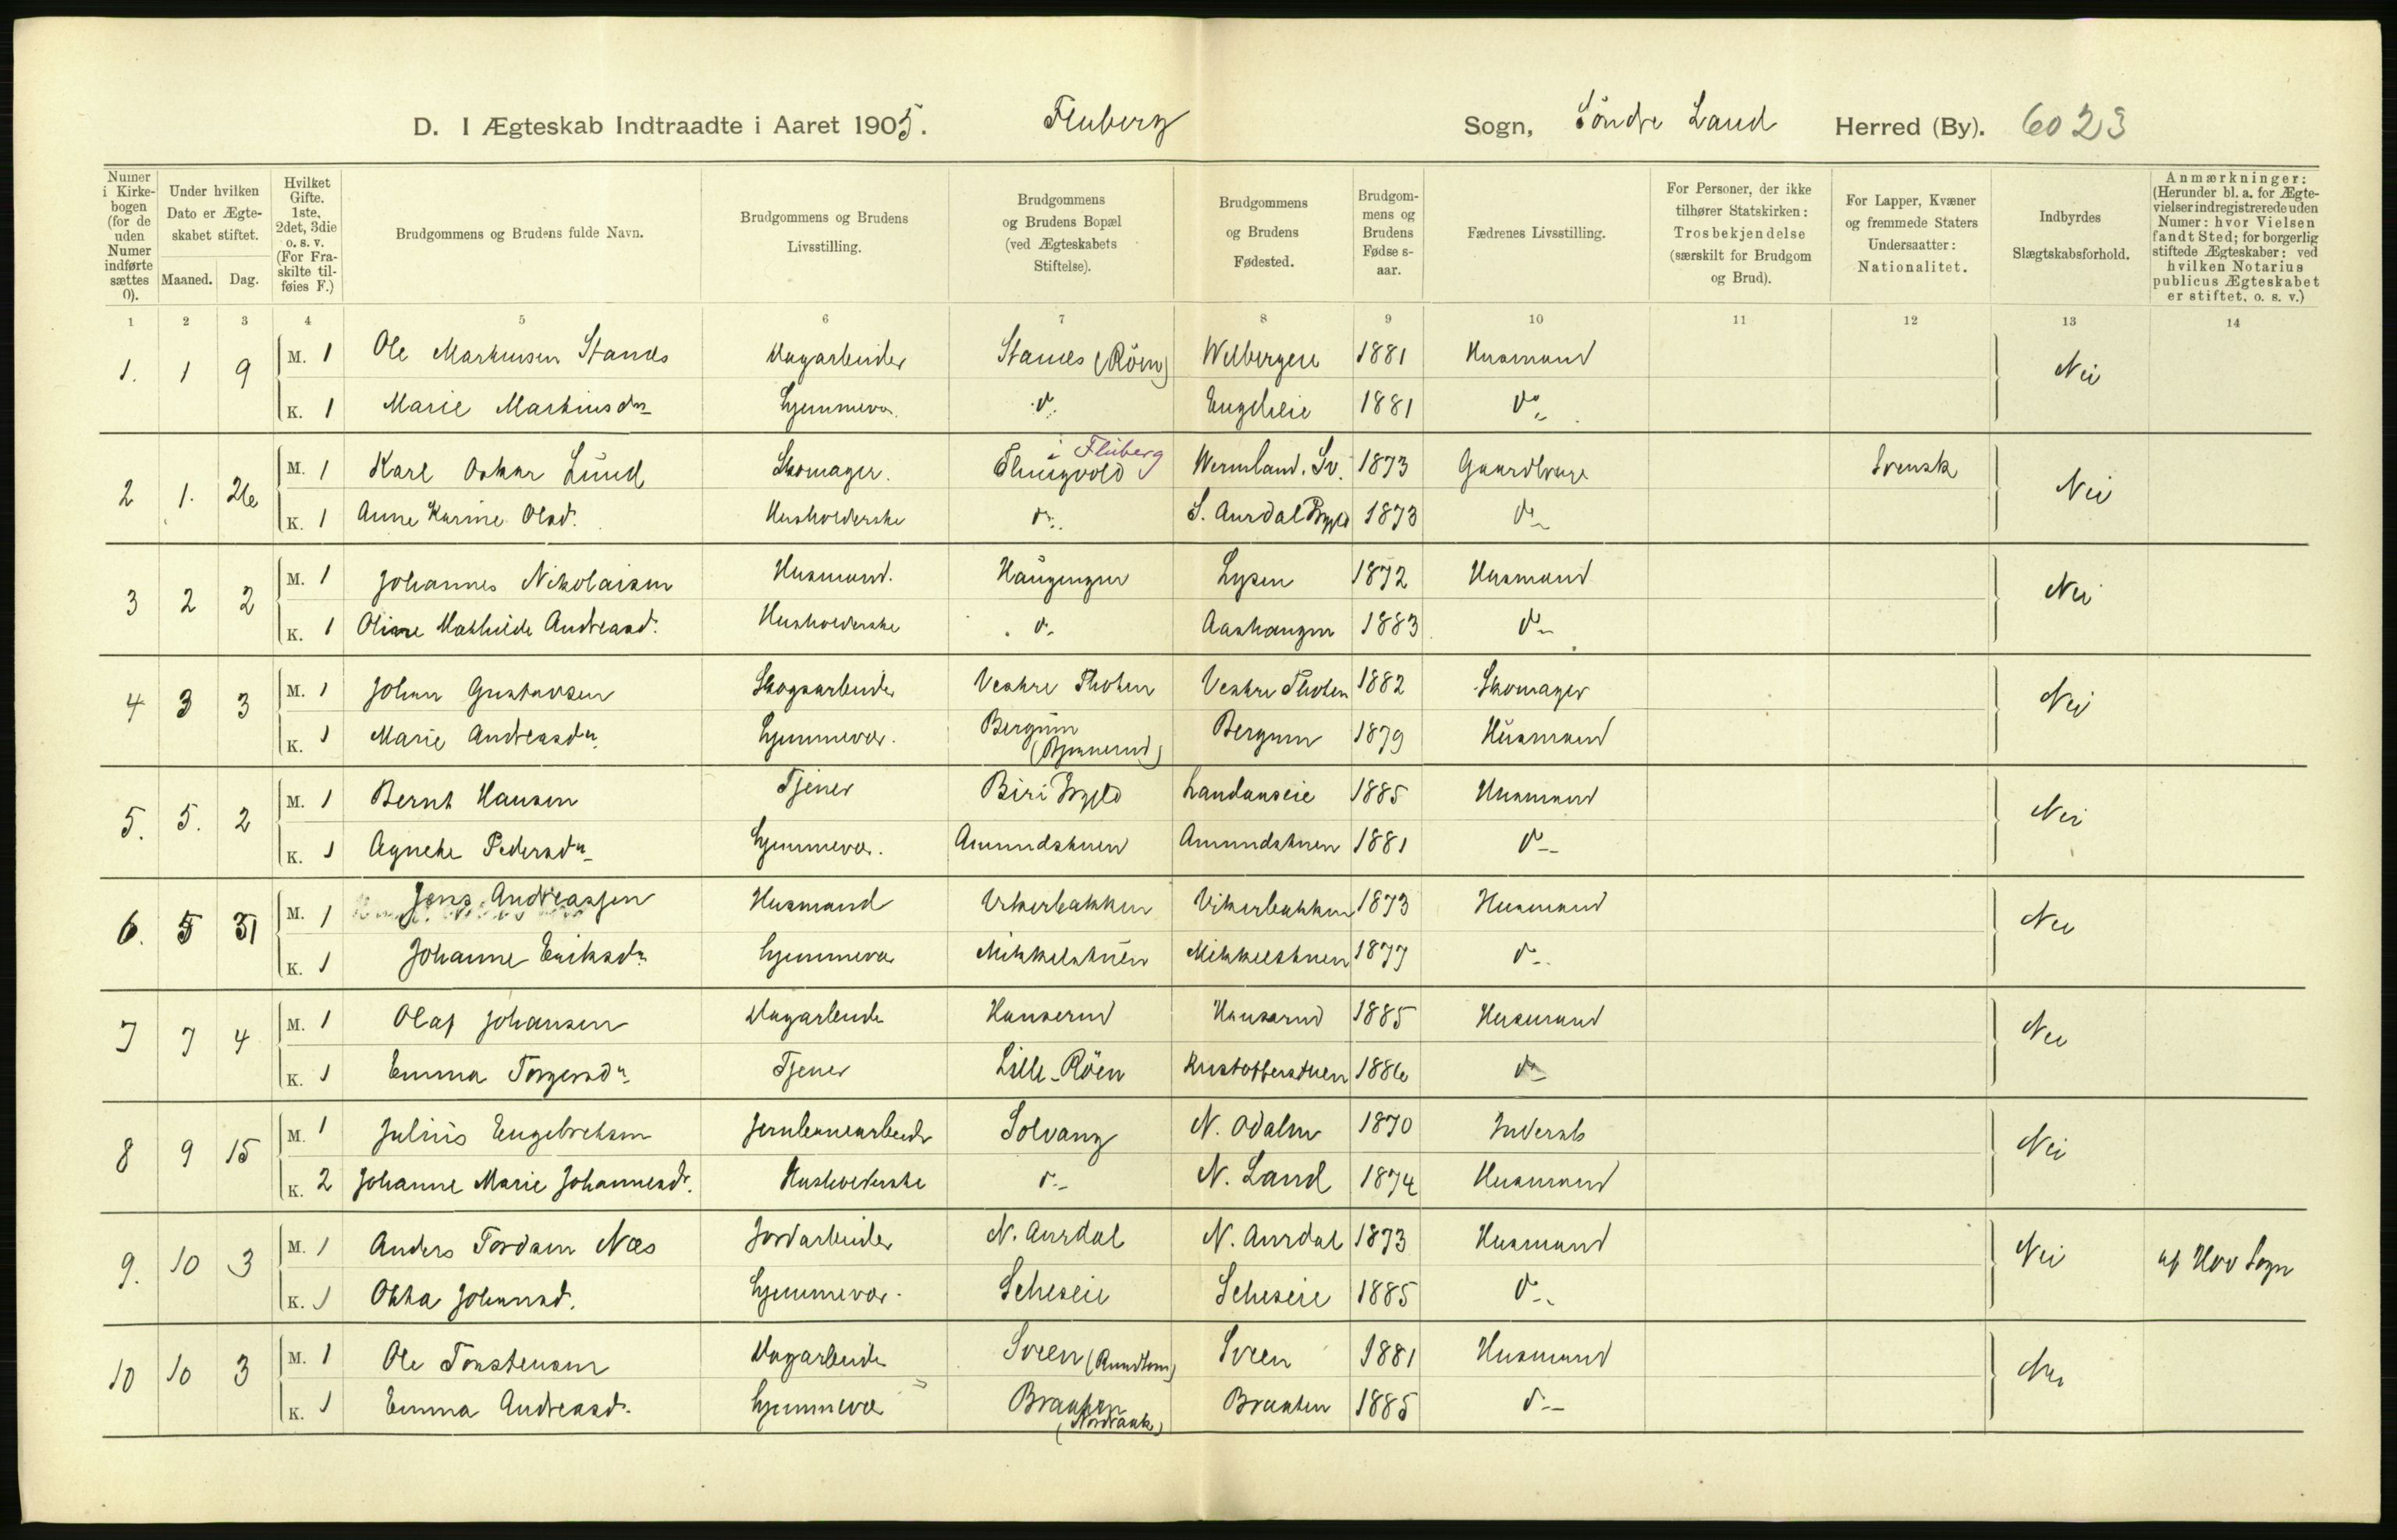 D. I Ægteskab Indtraadte i Aaret 1905. Fluberg Sogn, Söndre Land Herred (By). 6023
Numer i Kirkebogen (for de uden Numer indførte sættes 0). Under hvilken Dato er Ægteskabet stiftet. Maaned. Dag. Hvilket Gifte. 1ste, 2det, 3die o. s. v. (For Fraskilte tilføies F.) Brudgommens og Brudens fulde Navn. Brudgommens og Brudens Livsstilling. Brudgommens og Brudens Bopæl (ved Ægteskabets Stiftelse). Brudgommens og Brudens Fødested. Brudgommens og Brudens Fødselsaar. Fædrenes Livsstilling. For Personer, der ikke tilhører Statskirken: Trosbekjendelse (særskilt for Brudgom og Brud). For Lapper, Kvæner og fremmede Staters Undersaatter: Nationalitet. Indbyrdes Slægtskabsforhold. Anmærkninger: (Herunder bl. a. for Ægtevielser indregistrerede uden Numer: hvor Vielsen fandt Sted; for borgerlig stiftede Ægteskaber: ved hvilken Notarius publicus Ægteskabet er stiftet, o. s. v.)
1 2 3 4 5 6 7 8 9 10 11 12 13 14
1. 1 9 M. 1 Ole Markusen Stanes Dagarbeider Stanes (Röen) 1881 Husmand Nei
K. 1 Marie Martinusdtr Hjemmevær. do Engelieie 1881 do
2 1. 26 M. 1 Karl Oskar Lund Skomager. i Fluberg Wermland. Sv. 1873 Gaardbruger Svensk Nei
K. 1 Anne Karine Olsd. Husholderske do S. Aurdal Prgjld 1873 do
3 2 2 M. 1 Johannes Nikolaisen Husmand. Haugengen Lysen 1872 Husmand Nei
K. 1 Oline Mathilde Andreasd. Husholderske do Aashaugen 1883 do
4 3 3 M. 1 Johan Gustavsen Skogsarbeider Vestre Thoten Vestre Thoten 1882 Skomager Nei
K. 1 Marie Andreasdtr Hjemmevær. Bergum Bergum 1879 Husmand
5. 5. 2 M. 1 Bernt Hansen Tjener Biri Prgjld Landaaseie 1885 Husmand Nei
K. 1 Agnethe Pedersdtr Hjemmevær. Amundstuen Amundstuen 1881 do
6. 5 31 M. 1 Jens Andreassen Husmand Vikerbakken Vikerbakken 1873 Husmand Nei
K. 1 Johanne Eriksdtr Hjemmevær Mikkelstuen Mikkelstuen 1877 do
7 7 4 M. 1 Olaf Johansen Dagarbeider Hanserud Hanserud 1885 Husmand Nei
K. 1 Emma Torgersdtr Tjener Lille-Röen Kristofferstuen 1886 do
8 9 15 M. 1 Julius Engebretsen Jernbanearbeider Solvang N. Odalen 1870 Inderst Nei
K. 2 Johanne Marie Johannesdr. Husholderske do N. Land 1874 Husmand
9. 10 3 M. 1 Anders Tordsen Næs Jordarbeider N. Aurdal N. Aurdal 1873 Husmand Nei af Hov Sogn
K. 1 Johansd. Hjemmevær. Seheseie Seheseie 1885 do
10 10 3 M. 1 Ole Torstensen Dagarbeider Sveen Sveen 1881 Husmand Nei
K. 1 Emma Andreasd. Hjemmevær Braaten Braaten 1885 do